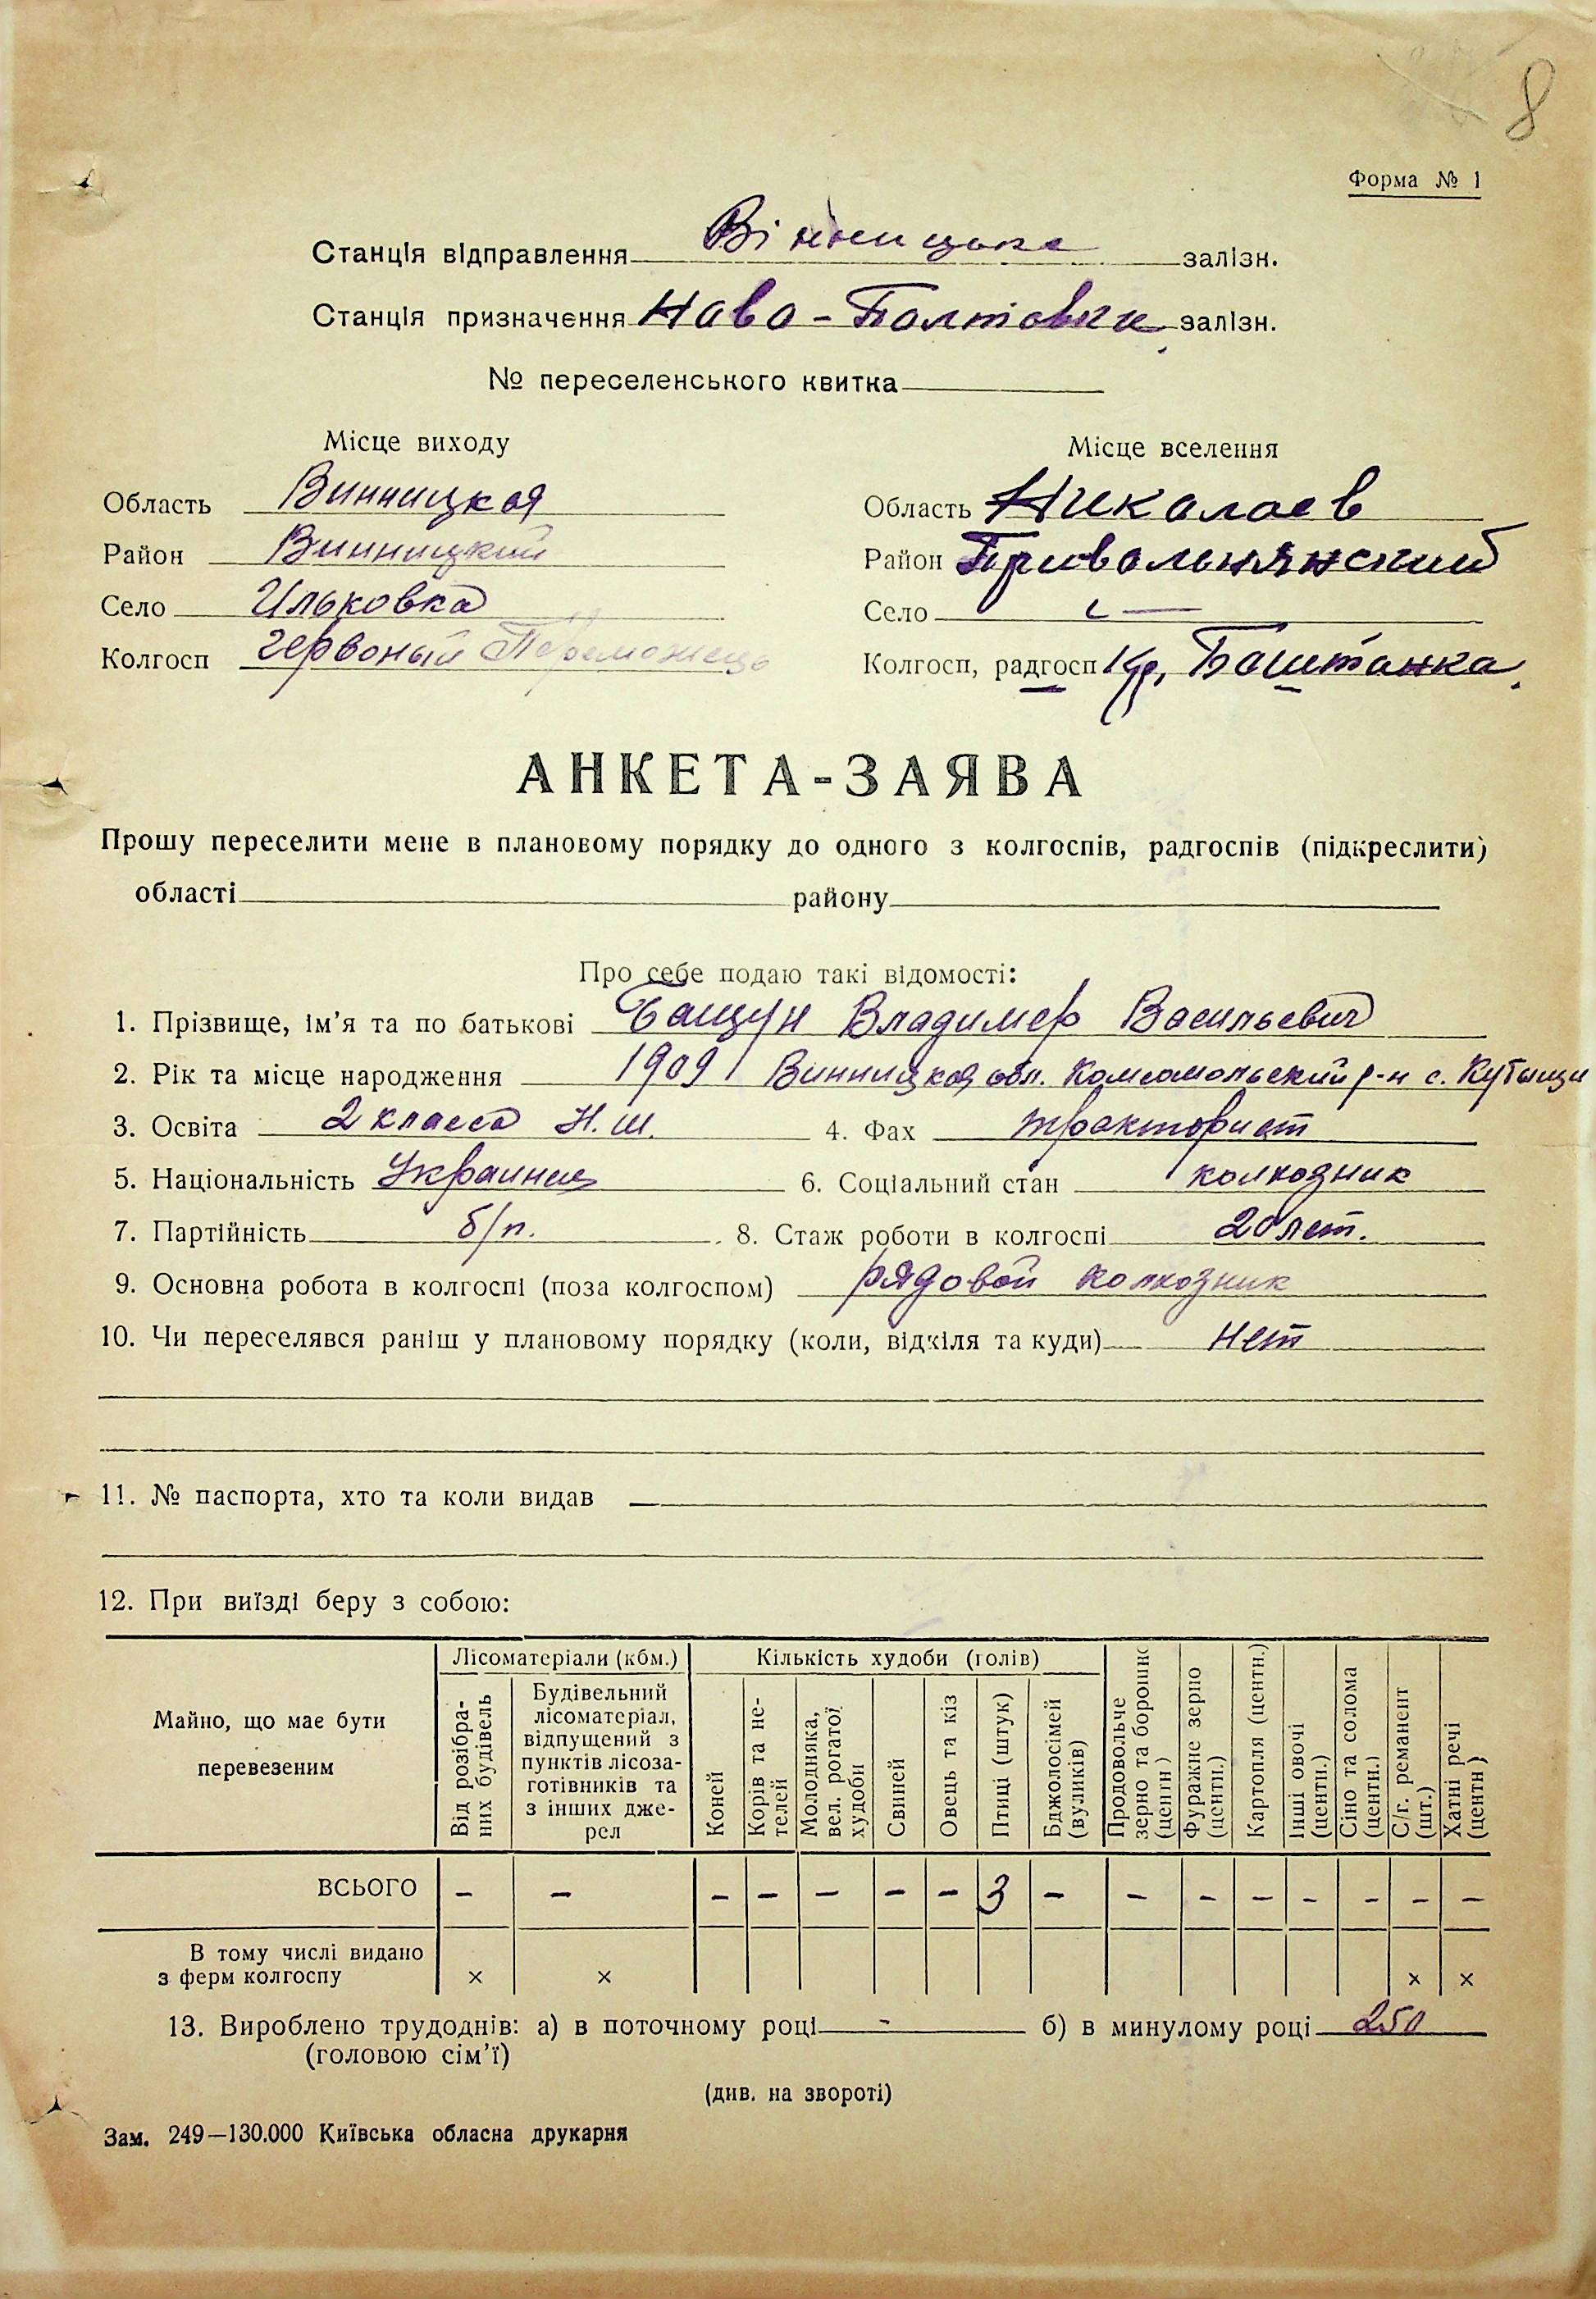 8
Форма № 1
Станція відправлення Вінницька залізн.
Станція призначення Ново-Полтовка залізн.
№ переселенського квитка
Місце виходу
Місце вселення
Область Винницкая
Область Николаев
Район Винницкий
Район Привольнянский
Село Ильковка
Село
Колгосп Червоный Переможець
Колгосп, радгосп Баштанка
АНКЕТА-ЗАЯВА
Прошу переселити мене в плановому порядку до одного з колгоспів, радгоспів (підкреслити)
області району
Про себе подаю такі відомості:
1. Прізвище, ім’я та по батькові Бащун Владимер Васильевич
2. Рік та місце народження 1909 Винницкая обл. Комсомольский р-н с. Кутыщи
3. Освіта 2 класса Н.Ш. 4. Фах тракторист
5. Національність Украинец 6. Соціальний стан колхозник
7. Партійність б/п. 8. Стаж роботи в колгоспі 20 лет.
9. Основна робота в колгоспі (поза колгоспом) рядовой колхозник
10. Чи переселявся раніш у плановому порядку (коли, відкіля та куди) нет
11. № паспорта, хто та коли видав
12. При виїзді беру з собою:
Майно, що має бути перевезеним
Лісоматеріали (кбм.)
Кількість худоби (голів)
Від розібраних будівель
Будівельний лісоматеріал, відпущений з пунктів лісозаготівників та з інших джерел
Коней
Корів та нетелей
Молодняка, вел. рогатої худоби
Свиней
Овець та кіз
Птиці (штук)
Бджолосімей (вуликів)
Продовольче зерно та борошно (центн)
Фуражне зерно (центн.)
Картопля (центн.)
Інші овочі (центн.)
Сіно та солома (центн.)
С/г. реманент (шт.)
Хатні речі (центн)
ВСЬОГО – – – – – – – 3 – – – – – – – –
В тому числі видано
з ферм колгоспу × × × ×
13. Вироблено трудоднів: а) в поточному році - б) в минулому році 250
(головою сім’ї)
(див. на звороті)
Зам. 249—130.000 Київська обласна друкарня